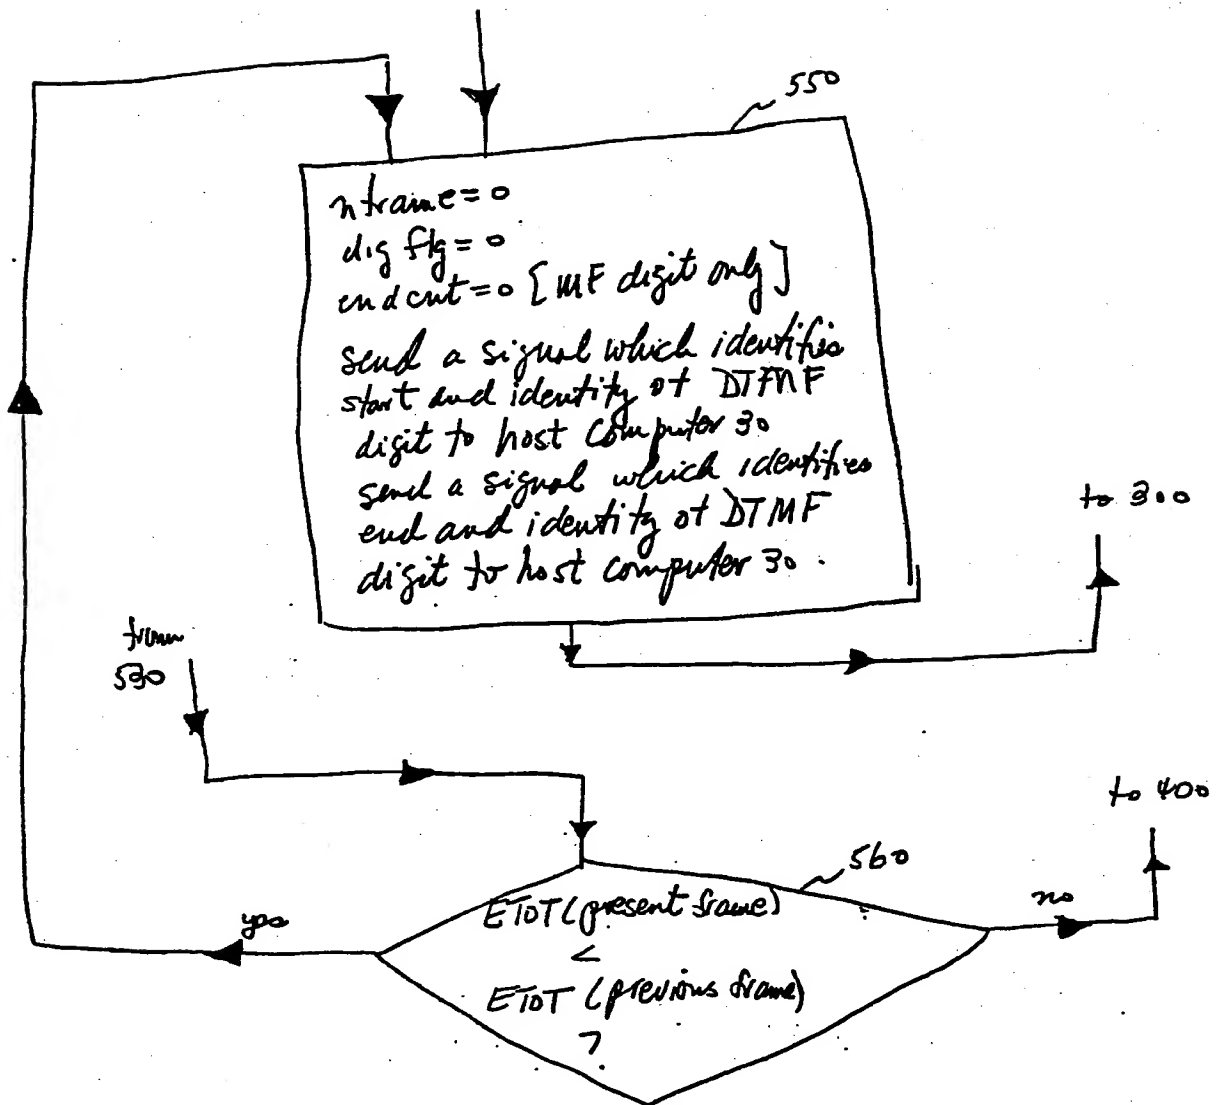 550
nframe=0
digflg=0
endcnt=0 [MF digit only]
send a signal which identifies
start and identity of DTMF
digit to host computer 30
send a signal which identifies
end and identity of DTMF
digit to host computer 30.
to 300
from
530
to 400
560
yes
ETOT (present frame)
no
<
ETOT (previous frame)
?